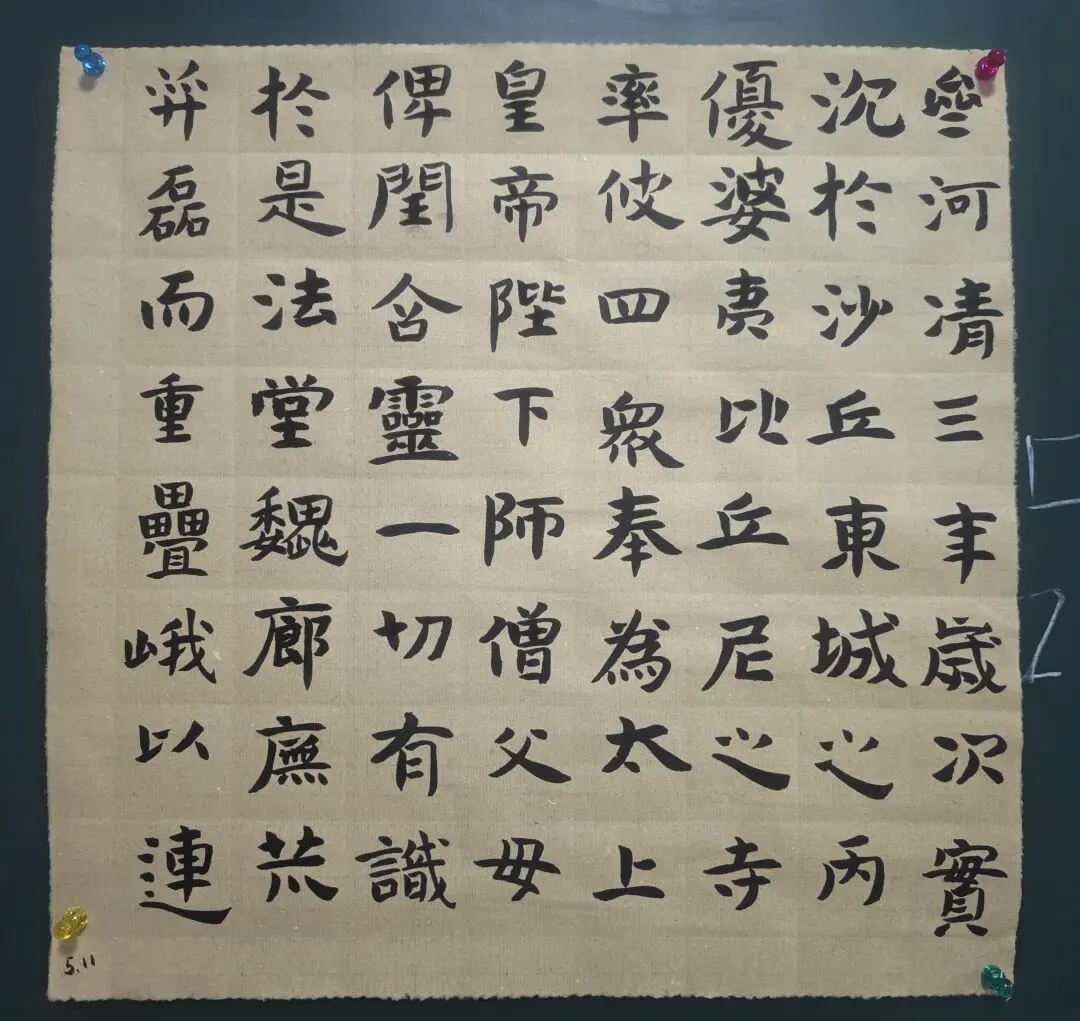 亝河清三年歲次實
沉於沙丘東城之丙
優婆夷比丘尼之寺
率彼四衆奉為太上
皇帝陛下師僧父母
俾閏含靈一切有識
於是法堂魏廊廡共
并磊而重疊峨以連
5.11